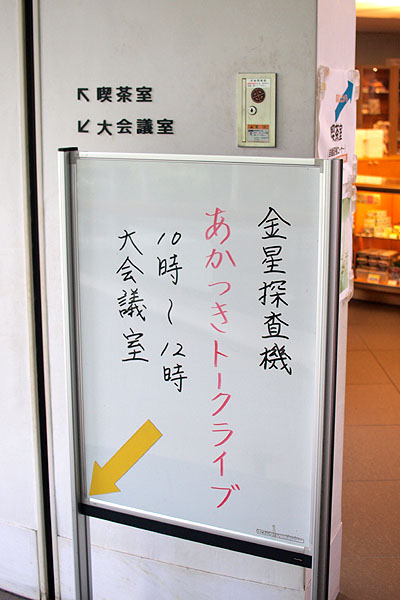 ↖喫茶室
↙大会議室
金星探査機
あかつきトークライブ
10時～12時
大会議室